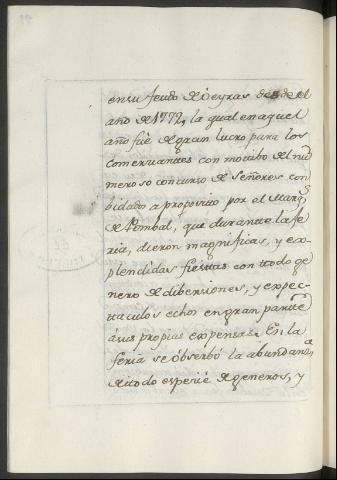 en su feudo de oeyras desde el
año de 1772, la qual en aquel
año fué de gran lucro para los
comerciantes con motibo del nu
meroso concurso de Señores con
bidado a proposito por el Marq.s
de Pombal, que durantte la fe
ria, dieron magnificas, y ex-
plendidas fiestas con ttodo ge
nero de dibersiones, y expec
ttaculos echos en gran partte
ásus propias expensas. En la
feria se óbserbó la abundan.a
de ttodo especie de generos, y